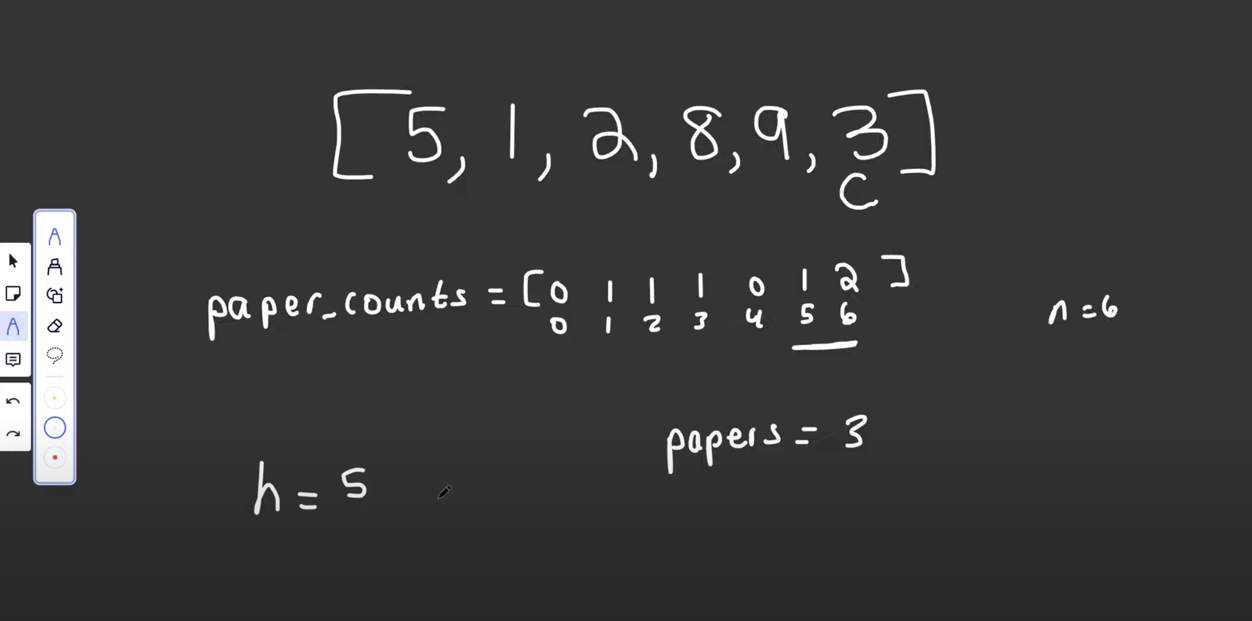 [5, 1, 2, 8, 9, 3]
C
paper_counts = [0 1 1 1 0 1 2]
0 1 2 3 4 5 6
n = 6
papers = 3
h = 5